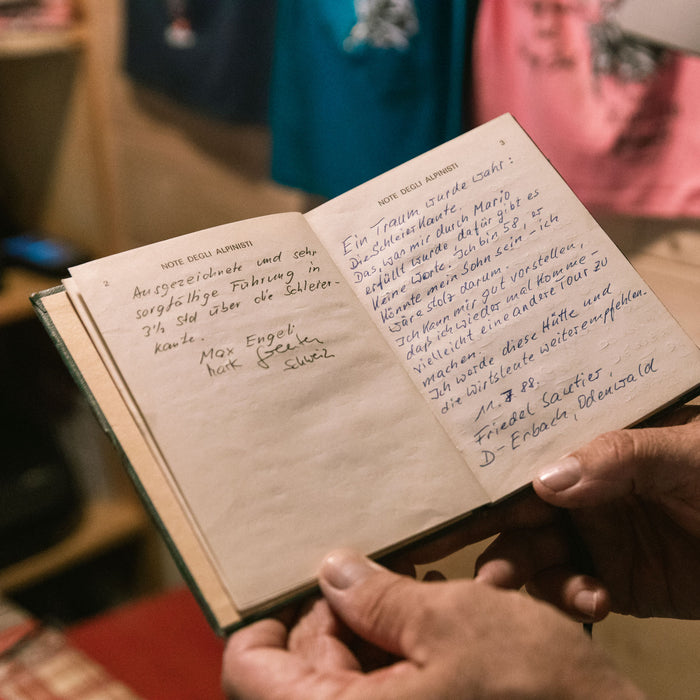 2
NOTE DEGLI ALPINISTI
Ausgezeichnete und sehr
sorgfältige Führung in
3½ std über die Schleier-
kante.
Max Engeli
Schweiz
3
NOTE DEGLI ALPINISTI
Ein Traum wurde wahr:
Die Schleierkante.
Das, was mir durch Mario
erfüllt wurde, dafür gibt es
keine Worte. Ich bin 58, er
könnte mein Sohn sein - ich
wäre stolz darum.
Ich kann mir gut vorstellen,
daß ich wieder mal komme -
vielleicht eine andere Tour zu
machen.
Ich werde diese Hütte und
die Wirtsleute weiterempfehlen.
11. 7. 88.
Friedel Sautier,
D-Erbach, Odenwald